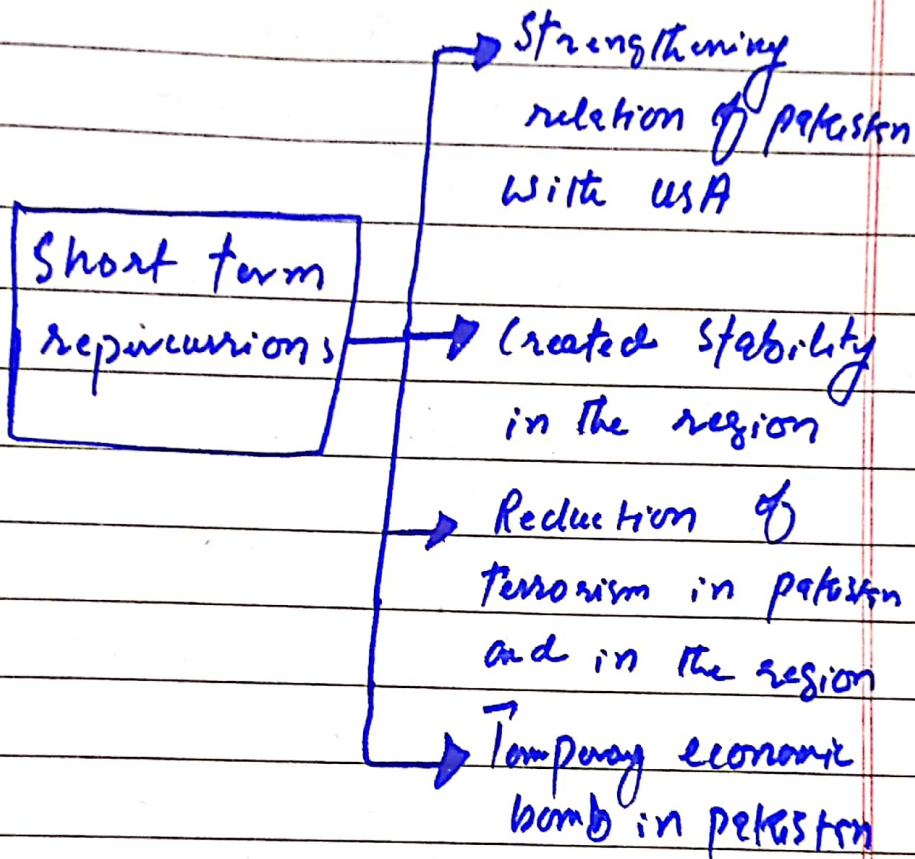 Short term
repircurrions
Strengthening
relation of pakistan
with USA
Created stability
in the region
Reduction of
terrorism in pakistan
and in the region
Tomporay economic
bomb in pakistan